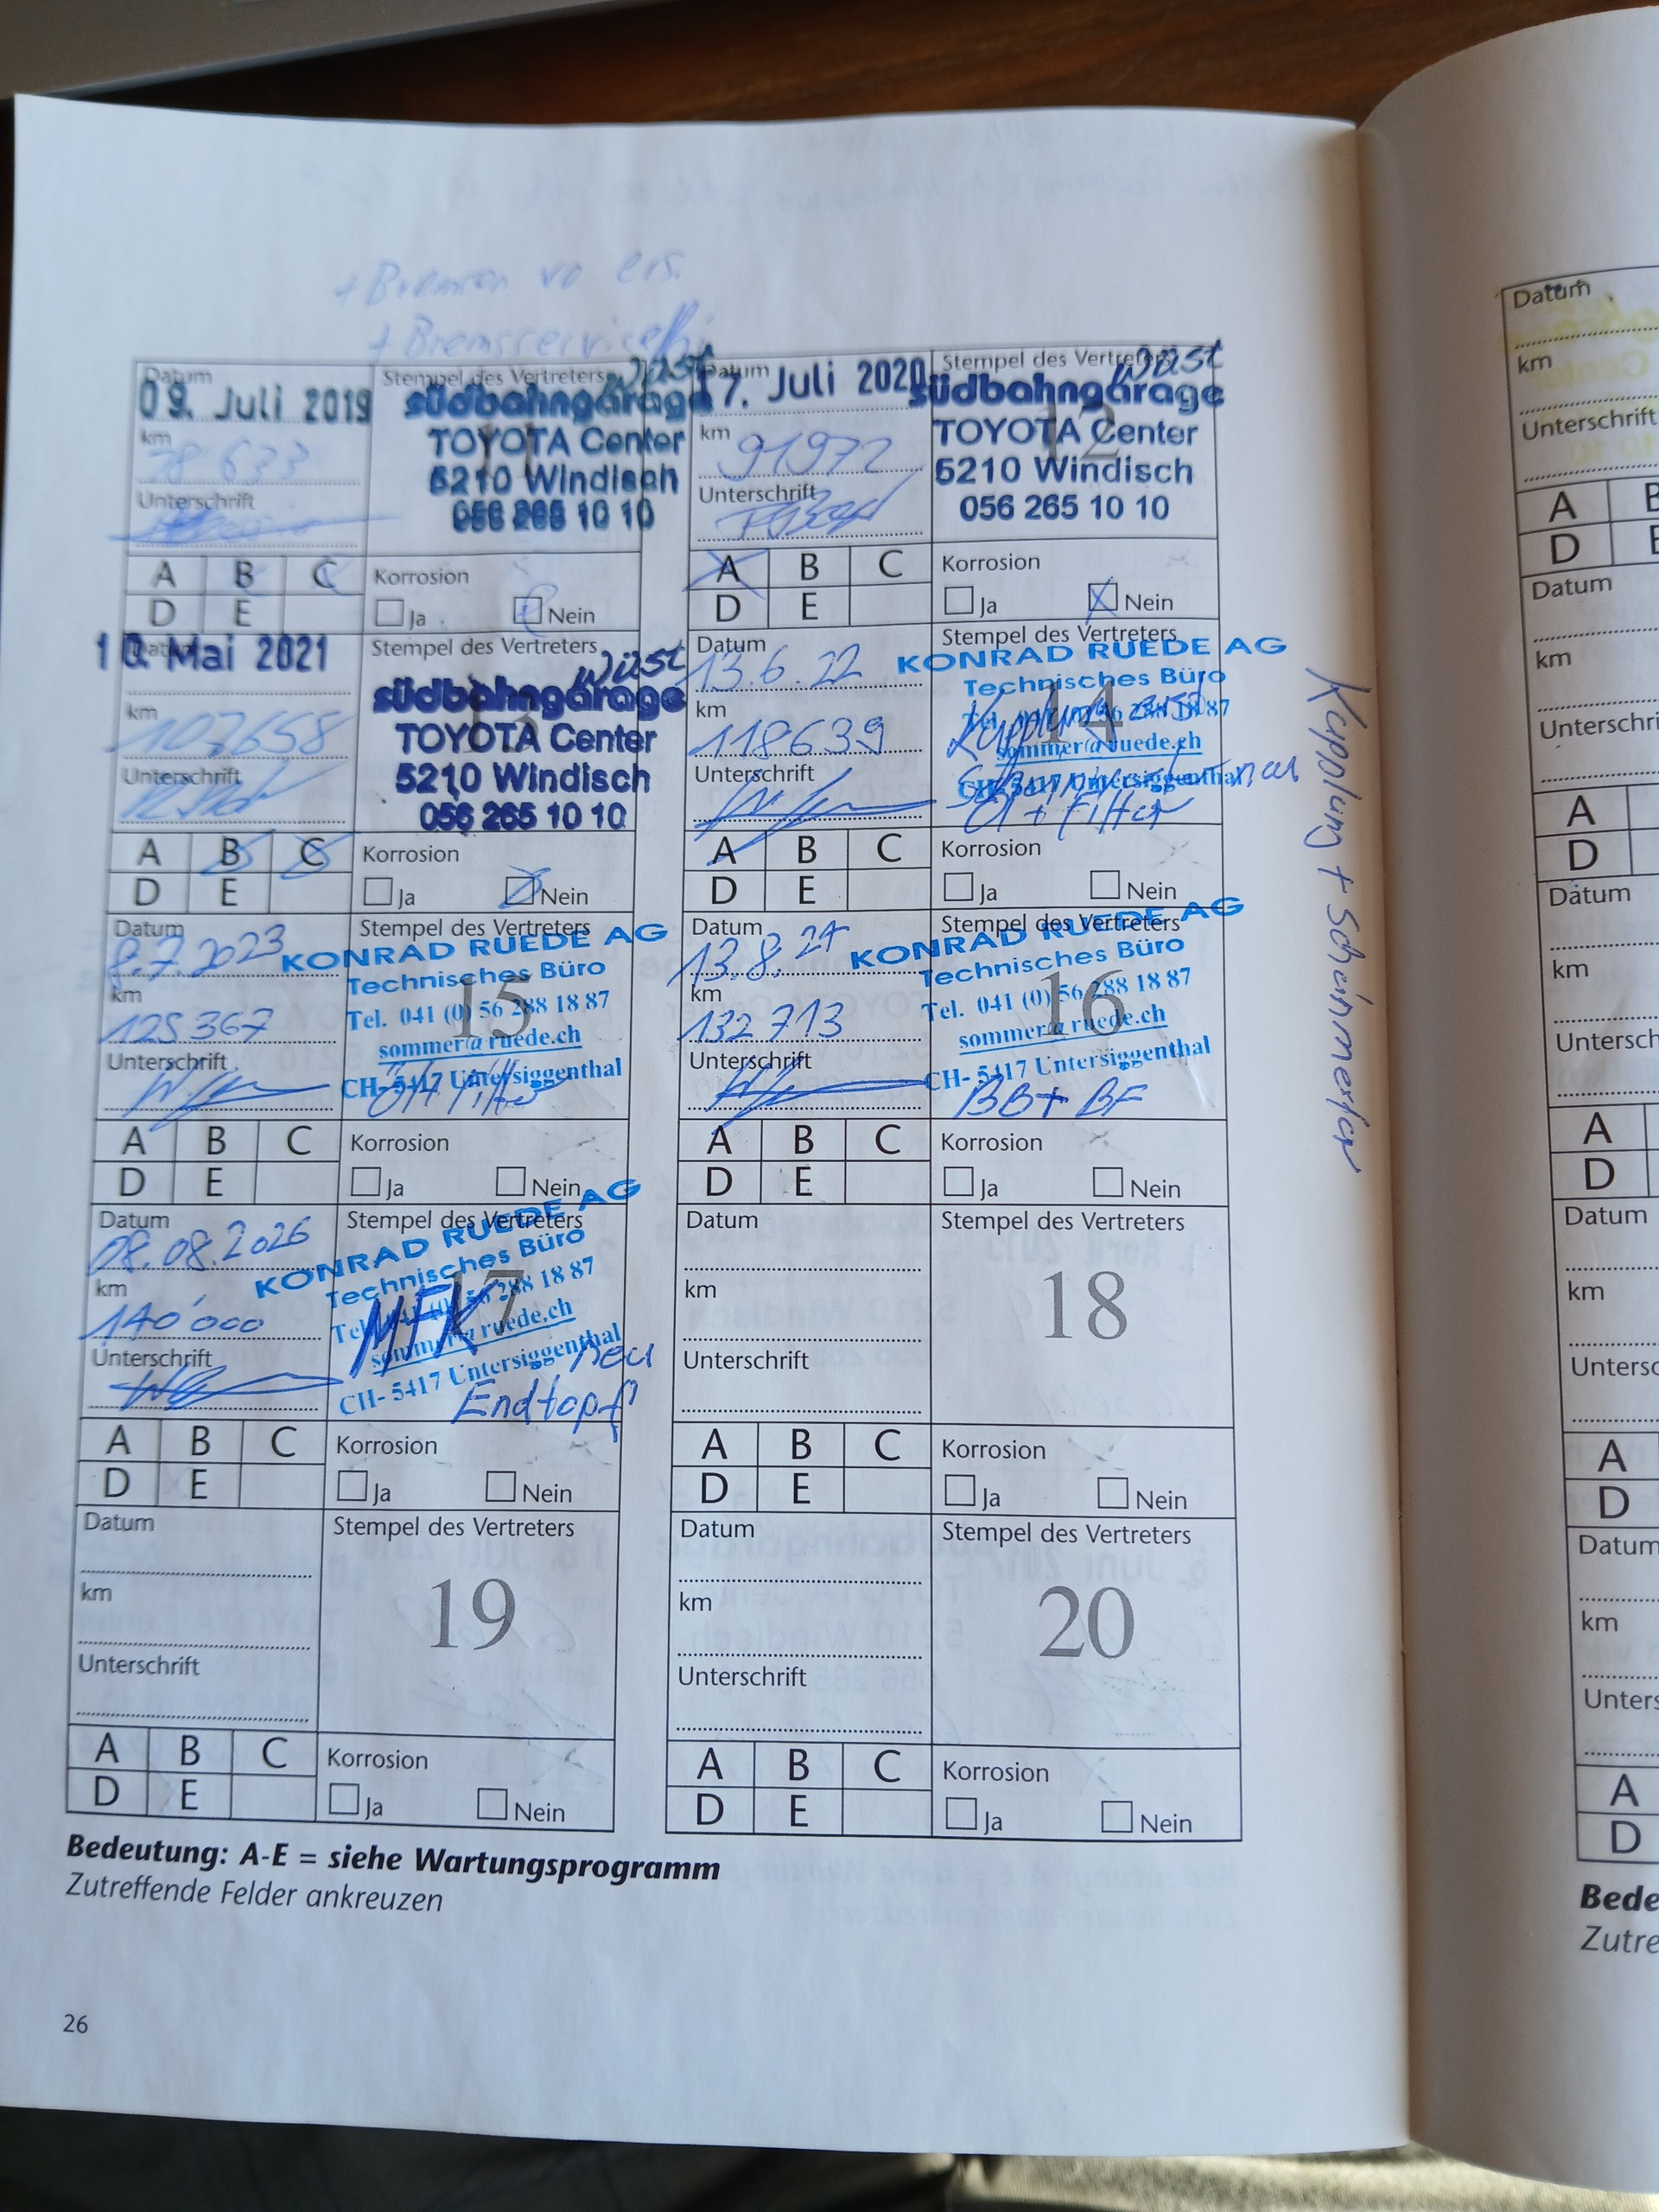 + Bremsen vo ers.
+ Bremsservice hi
Datum
09. Juli 2019
km
78 633
Unterschrift
Stempel des Vertreters
Wüst
südbahngarage
TOYOTA Center
5210 Windisch
056 265 10 10
A B C
D E
Korrosion
Ja Nein
Datum
17. Juli 2020
km
91972
Unterschrift
Stempel des Vertreters
Wüst
südbahngarage
12
TOYOTA Center
5210 Windisch
056 265 10 10
A B C
D E
Korrosion
Ja Nein
Datum
10. Mai 2021
km
107658
Unterschrift
Stempel des Vertreters
Wüst
südbahngarage
13
TOYOTA Center
5210 Windisch
056 265 10 10
A B C
D E
Korrosion
Ja Nein
Datum
13.6.22
km
118639
Unterschrift
Stempel des Vertreters
KONRAD RUEDE AG
Technisches Büro
14
Tel. 041 (0) 56 288 18 87
Kupplung
sommer@ruede.ch
CH-5417 Untersiggenthal
neu
Öl + Filter
A B C
D E
Korrosion
Ja Nein
Kupplung + Scheinwerfer
Datum
8.7.2023
km
125367
Unterschrift
Stempel des Vertreters
KONRAD RUEDE AG
Technisches Büro
15
Tel. 041 (0) 56 288 18 87
sommer@ruede.ch
CH-5417 Untersiggenthal
Öl + Filter
A B C
D E
Korrosion
Ja Nein
Datum
13.8.24
km
132713
Unterschrift
Stempel des Vertreters
KONRAD RUEDE AG
Technisches Büro
16
Tel. 041 (0) 56 288 18 87
sommer@ruede.ch
CH-5417 Untersiggenthal
BB + BF
A B C
D E
Korrosion
Ja Nein
Datum
08.08.2026
km
140'000
Unterschrift
Stempel des Vertreters
KONRAD RUEDE AG
Technisches Büro
17
Tel. 041 (0) 56 288 18 87
MFK
sommer@ruede.ch
CH-5417 Untersiggenthal
neu
Endtopf
A B C
D E
Korrosion
Ja Nein
Datum
km
Unterschrift
Stempel des Vertreters
18
A B C
D E
Korrosion
Ja Nein
Datum
km
Unterschrift
Stempel des Vertreters
19
A B C
D E
Korrosion
Ja Nein
Datum
km
Unterschrift
Stempel des Vertreters
20
A B C
D E
Korrosion
Ja Nein
Bedeutung: A-E = siehe Wartungsprogramm
Zutreffende Felder ankreuzen
26
Datum
km
Unterschrift
A B
D E
Datum
km
Unterschri
A
D
Datum
km
Untersch
A
D
Datum
km
Untersc
A
D
Datum
km
Unters
A
D
Bede
Zutre